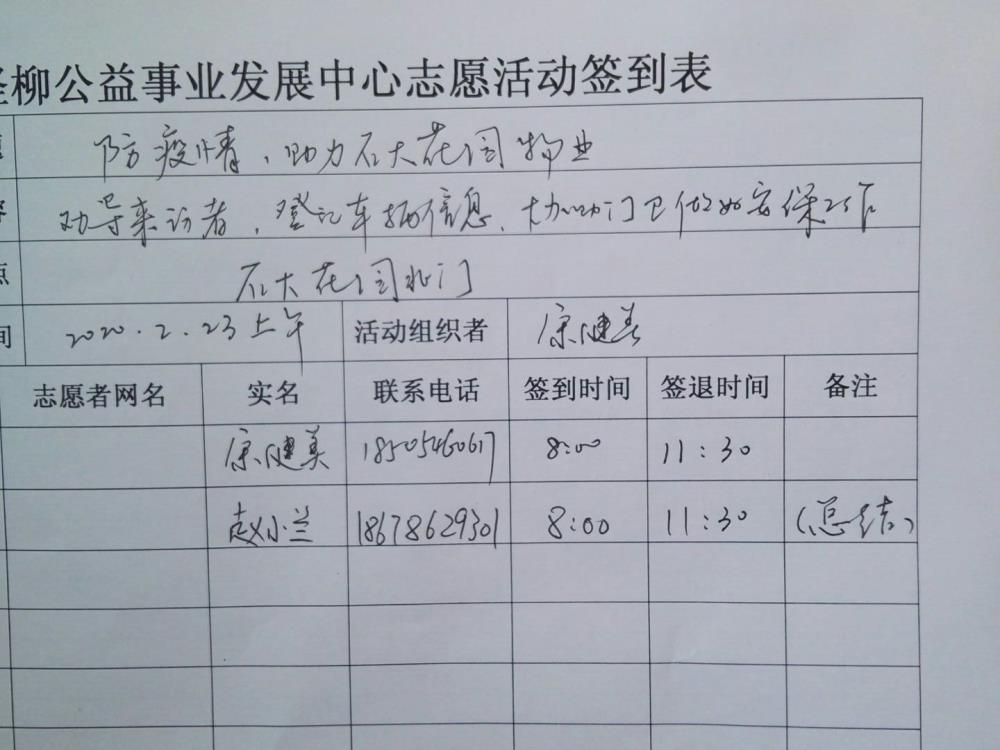 柳公益事业发展中心志愿活动签到表
防疫情，助力石大花园物业
劝导来访者，登记车辆信息，协助门卫做好安保工作
点 石大花园北门
间 2020.2.23上午 活动组织者 康健美
志愿者网名 实名 联系电话 签到时间 签退时间 备注
康健美 18505460617 8:00 11:30
赵小兰 18678629301 8:00 11:30 (总结)